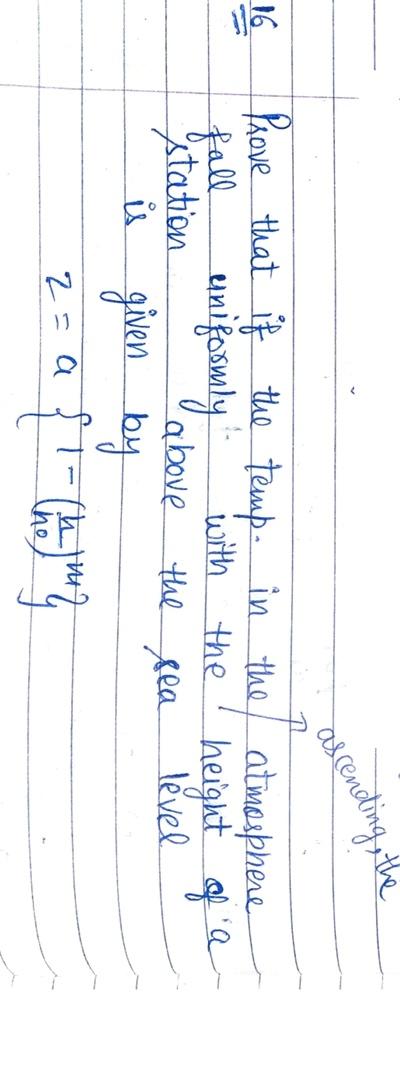 ascending, the
16 Prove that if the temp. in the atmosphere
fall uniformly with the height of a
station above the sea level
is given by
z = a { 1 - (h/h0)^m }